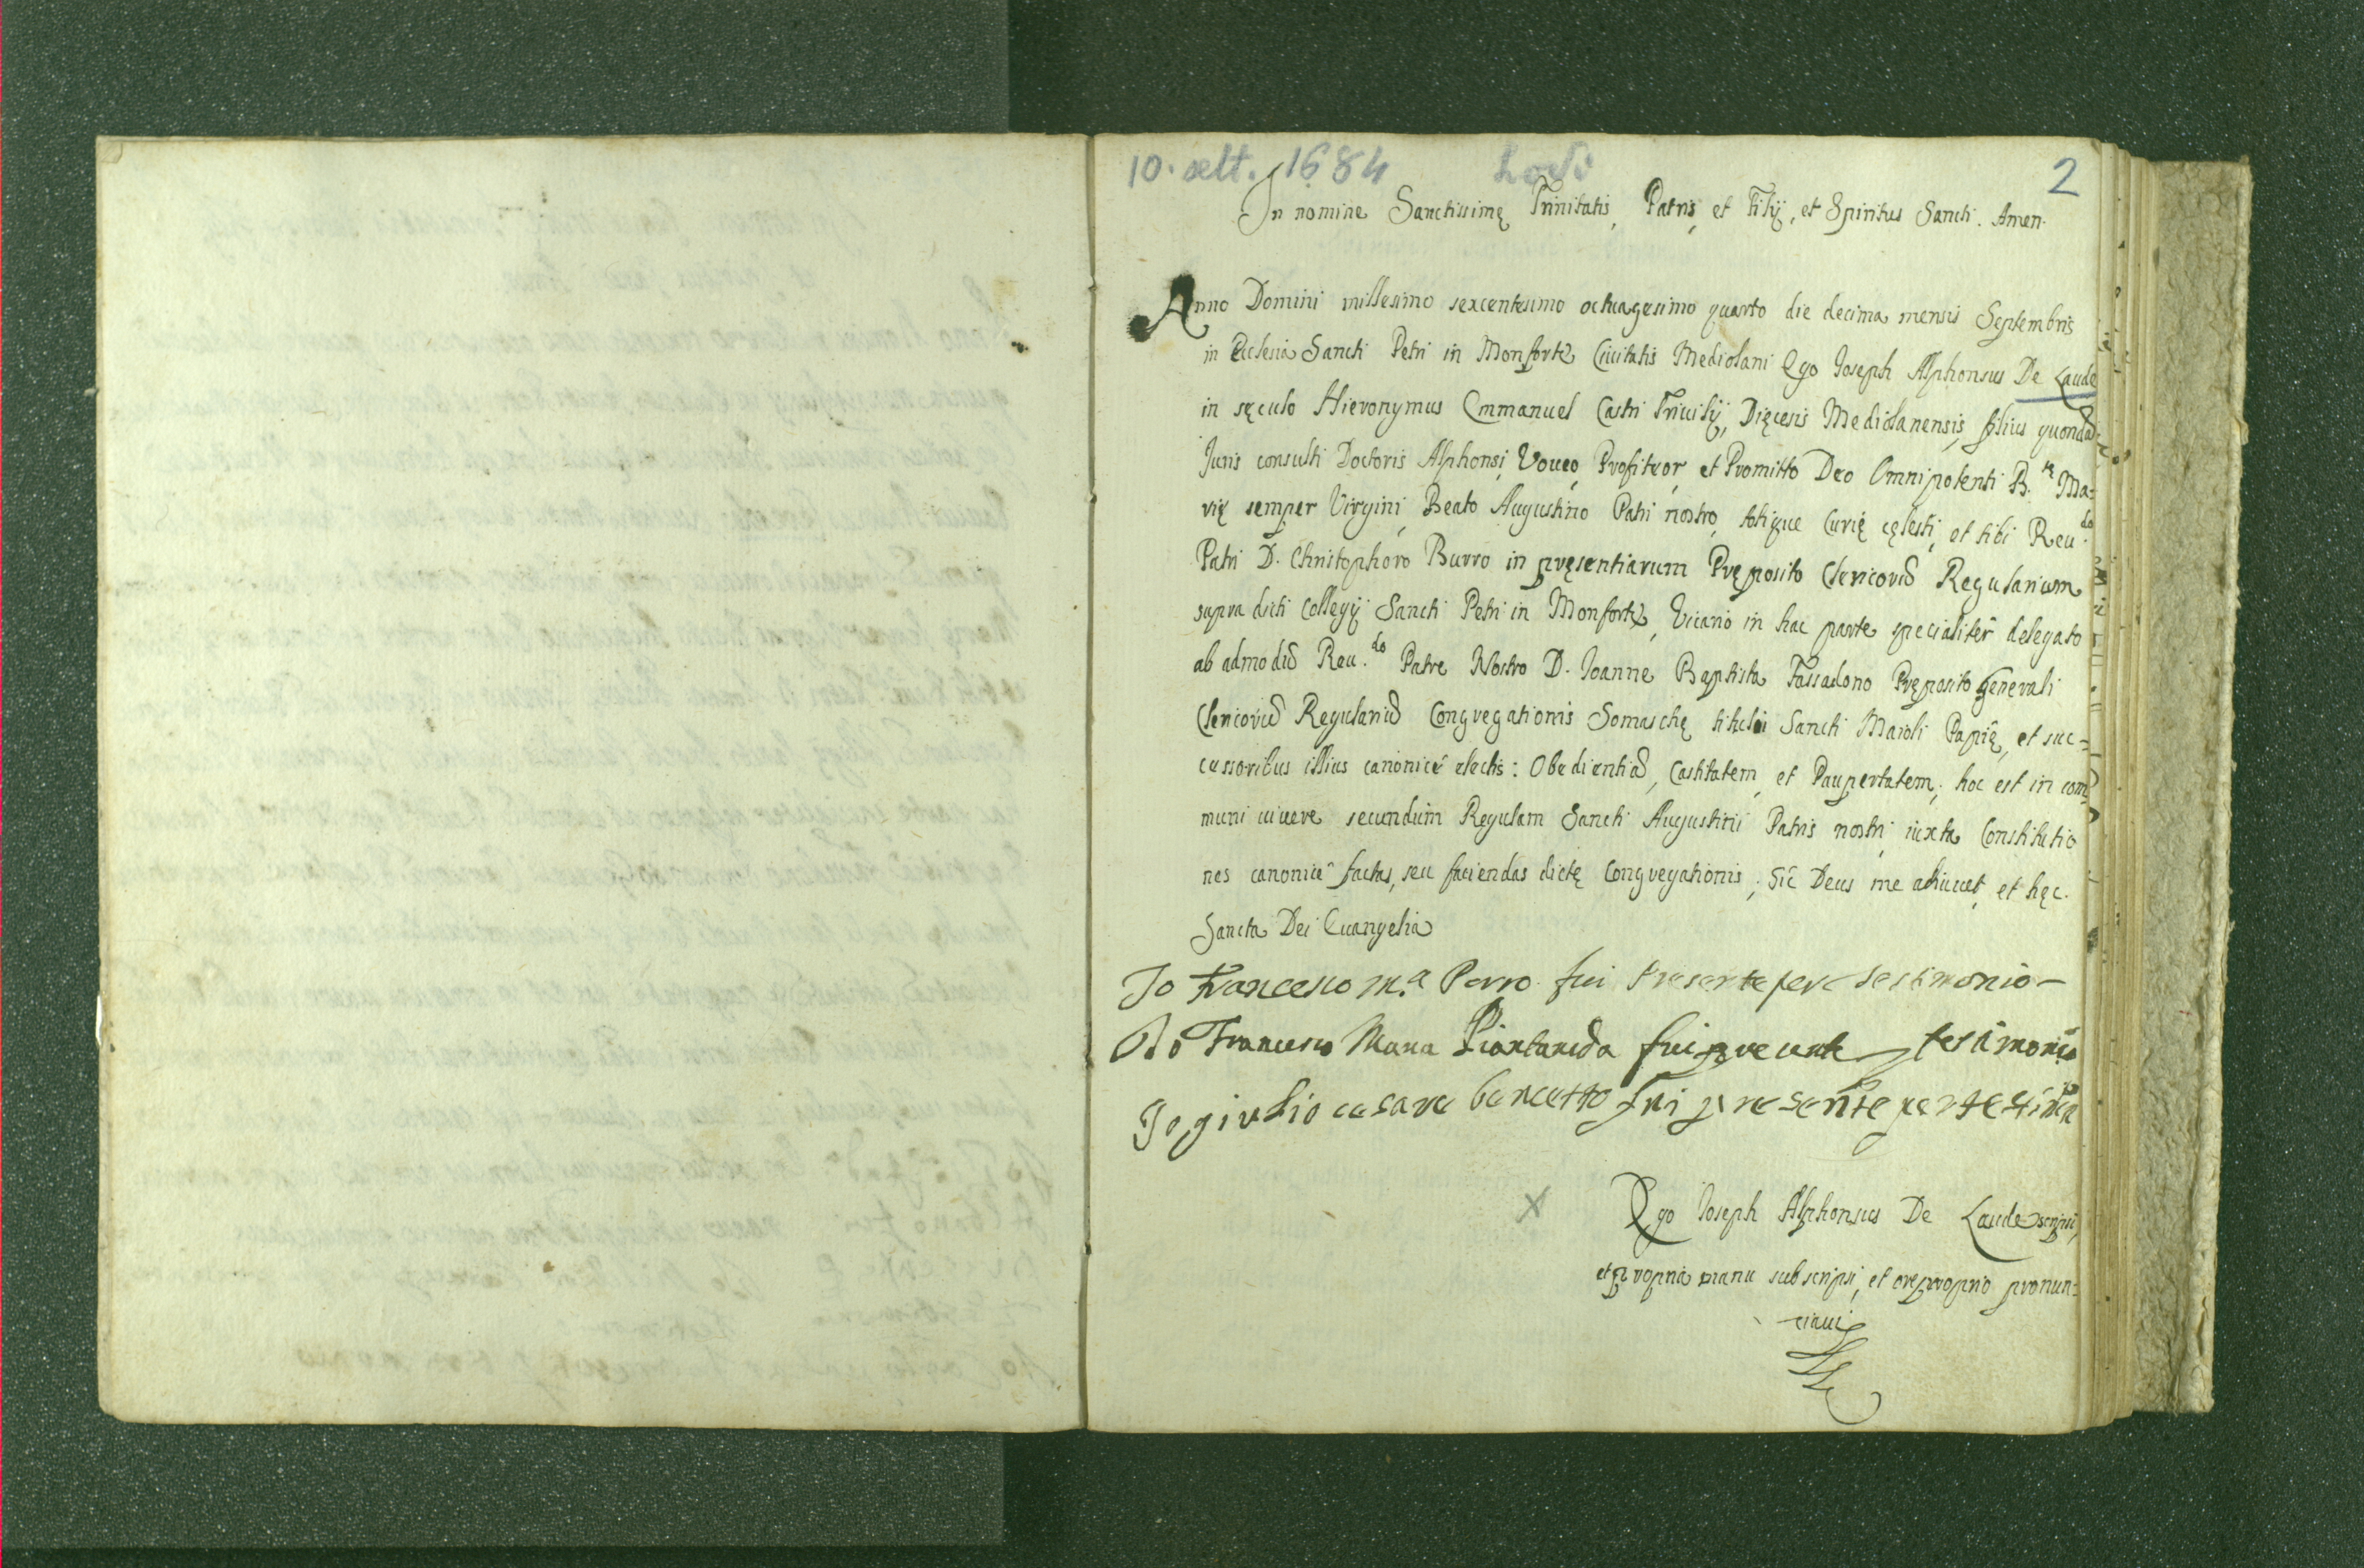 10. sett. 1684 Lodi 2
In nomine Sanctissimę Trinitatis, Patris, et Filij, et Spiritus Sancti. Amen.
Anno Domini millesimo sexcentesimo octuagesimo quarto die decima mensis Septembris
in Ecclesia Sancti Petri in Monforte Ciuitatis Mediolani Ego Ioseph Alphonsus De Laude
in sęculo Hieronymus Emmanuel Castri Triuilij, Dięcesis Mediolanensis, filius quondã
Juris consulti Doctoris Alphonsi, Voueo, Profiteor, et Promitto Deo Omnipotenti B.tę Ma=
rię semper Virgini, Beato Augustino Patri nostro, totique Curię cęlesti, et tibi Reu.do
Patri D. Christophoro Burro in pręsentiarum Pręposito Clericorũ Regularium
supra dicti Collegij Sancti Petri in Monforte, Vicario in hac parte specialitêr delegato
ab admodũ Reu.do Patre Nostro D. Ioanne Baptista Fassadono Pręposito Generali
Clericorũ Regulariũ Congregationis Somaschę tituli Sancti Maioli Papię, et suc=
cessoribus illius canonicê electis: Obedientiã, Castitatem, et Paupertatem; hoc est in com=
muni uiuere secundùm Regulam Sancti Augustini Patris nostri, iuxta Constitutio
nes canonicê factas, seu faciendas dictę Congregationis; Sic Deus me adiuuet, et hęc.
Sancta Dei Euangelia
Io Francesco M.a Porro fui Presente per testimonio
Io Francesco Maria Piantanida fui presente p testimonio
Io giulio cesare bancetto fui presente per testimo
X Ego Ioseph Alphonsus De Laude scripsi,
et propria manu subscripsi, et ore proprio pronun=
ciaui